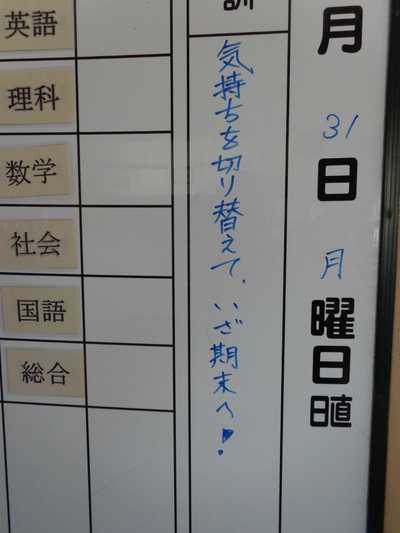 月
31
日
月
曜日
日直
訓
気持ちを切り替えて、いざ期末へ!
英語
理科
数学
社会
国語
総合